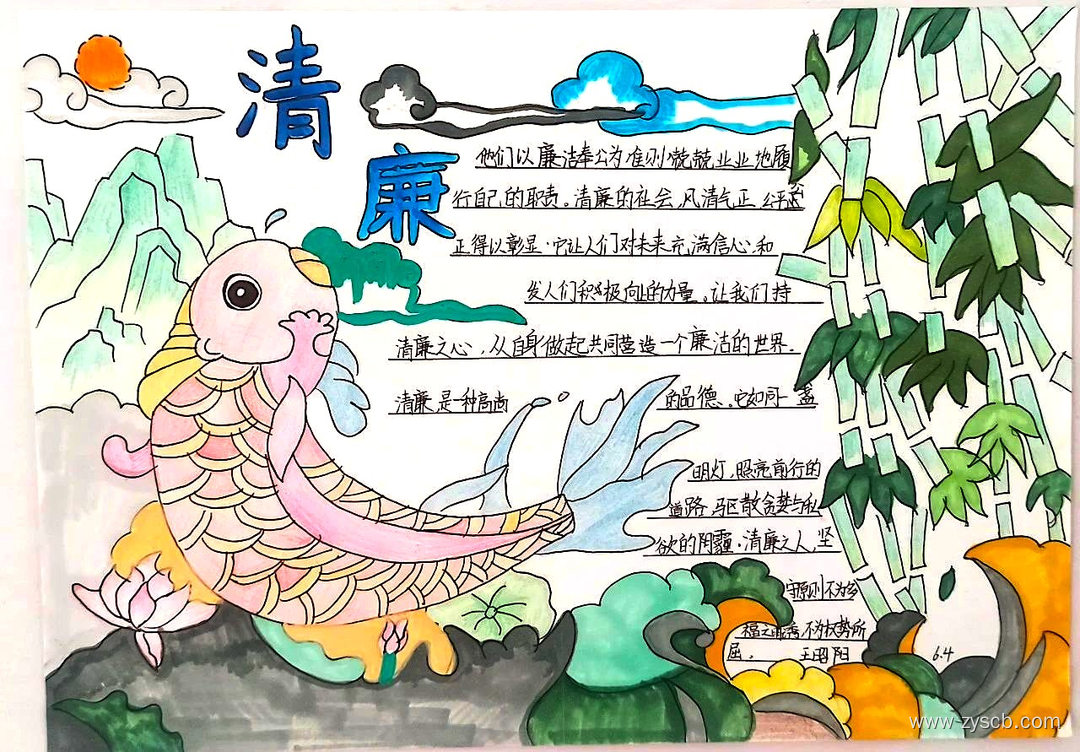 清
廉
他们以廉洁奉公为准则,兢兢业业地履
行自己的职责。清廉的社会,风清气正,公平
正得以彰显.它让人们对未来充满信心,和
发人们积极向上的力量。让我们持
清廉之心,从自身做起共同营造一个廉洁的世界.
清廉是一种高尚的品德.它如同一盏
明灯,照亮前行的
道路,驱散贪婪与私
欲的阴霾.清廉之人,坚
守原则不为
不为权势所
屈.
王昭阳
6.4
www.zyscb.com